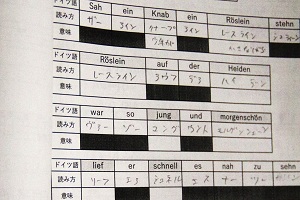 ドイツ語 Sah ein Knab ein Röslein stehn
読み方 ザー アイン クナープ アイン レースライン
意味
ドイツ語 Röslein auf der Heiden
読み方 レースライン アウフ デア ハイデン
意味
ドイツ語 war so jung und morgenschön
読み方 ヴァー ゾー ユング ウント モルゲンシェーン
意味
ドイツ語 lief er schnell es nah zu sehn
読み方 リーフ エア シュネル エス ナー ツー ゼーン
意味